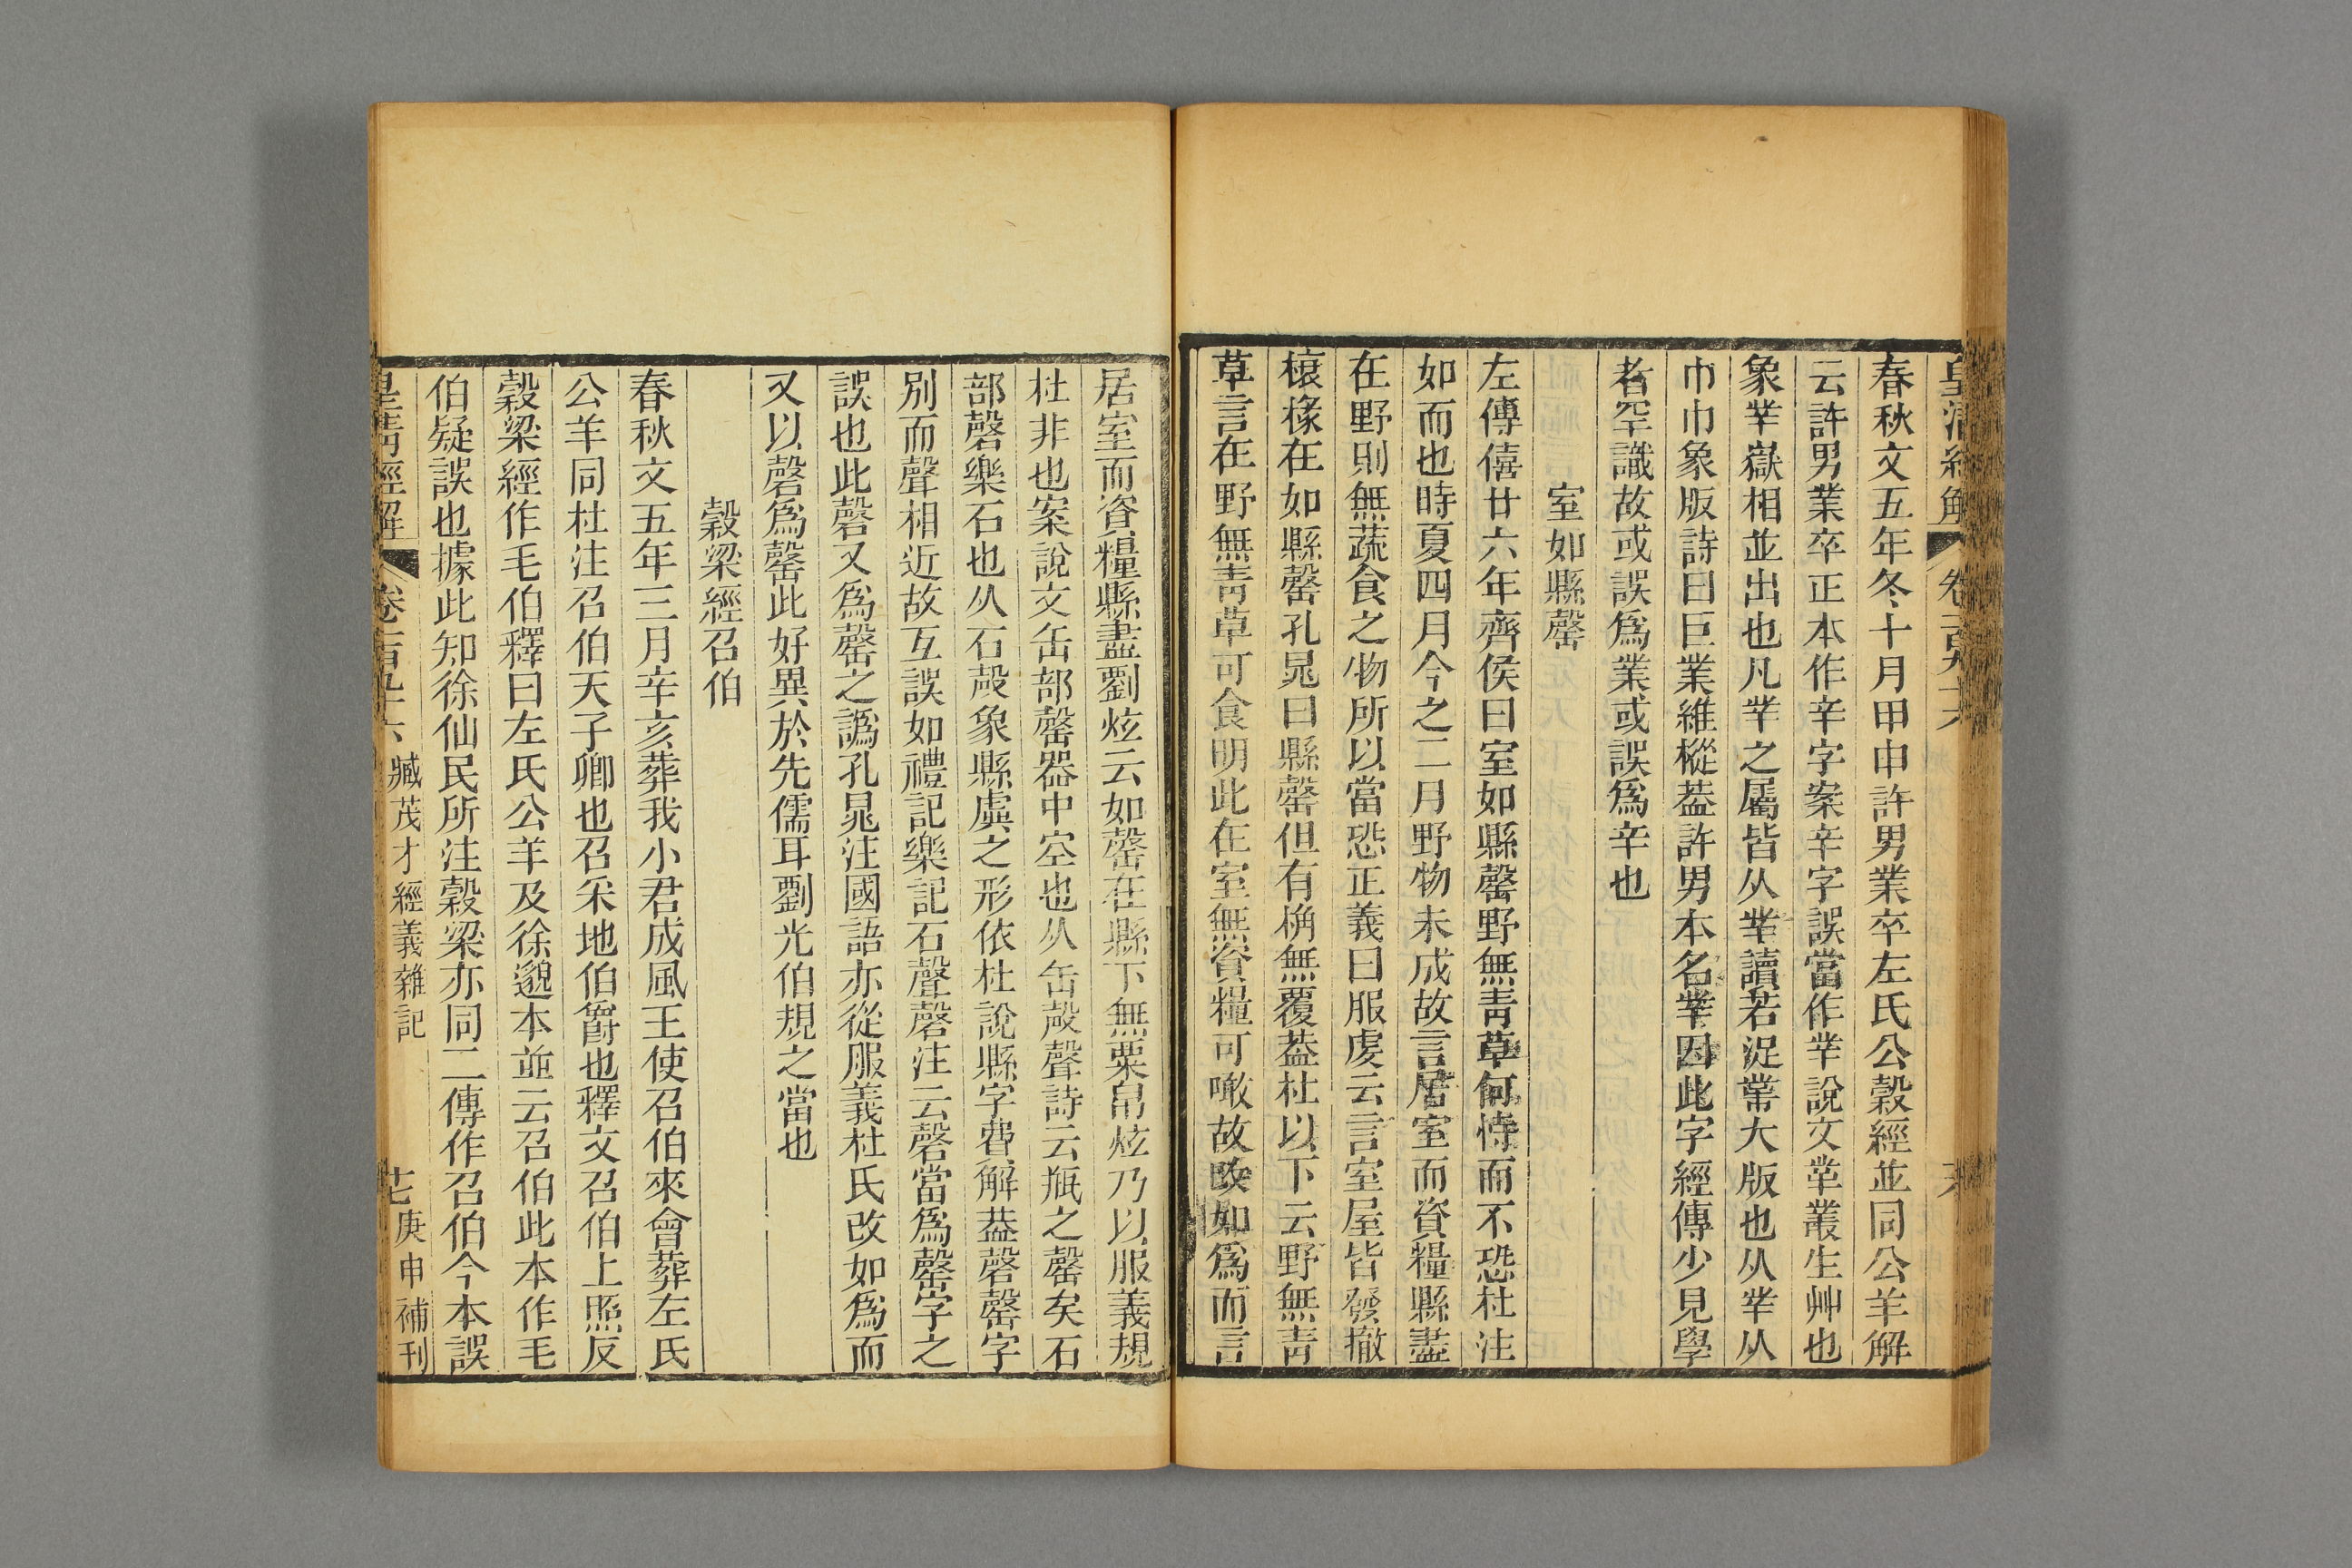 皇清經解 卷一百九十六 六
春秋文五年冬十月甲申許男業卒左氏公穀經並同公羊解
云許男業卒正本作辛字案辛字誤當作丵說文丵叢生艸也
象丵嶽相並出也凡丵之屬皆从丵讀若浞業大版也从丵从
巾巾象版詩曰巨業維樅葢許男本名丵因此字經傳少見學
者罕識故或誤爲業或誤爲辛也
室如縣罄
左傳僖廿六年齊侯曰室如縣罄野無靑草何恃而不恐杜注
如而也時夏四月今之二月野物未成故言居室而資糧縣盡
在野則無蔬食之物所以當恐正義曰服虔云言室屋皆發撤
榱椽在如縣罄孔晁曰縣罄但有桷無覆葢杜以下云野無靑
草言在野無靑草可食明此在室無資糧可噉故改如爲而言
居室而資糧縣盡劉炫云如罄在縣下無粟帛炫乃以服義規
杜非也案說文缶部罄器中空也从缶殸聲詩云瓶之罄矣石
部磬樂石也从石殸象縣虡之形依杜說縣字費解葢磬罄字
別而聲相近故互誤如禮記樂記石聲磬注云磬當爲罄字之
誤也此磬又爲罄之譌孔晁注國語亦從服義杜氏改如爲而
又以磬爲罄此好異於先儒耳劉光伯規之當也
穀梁經召伯
春秋文五年三月辛亥葬我小君成風王使召伯來會葬左氏
公羊同杜注召伯天子卿也召采地伯爵也釋文召伯上照反
穀梁經作毛伯釋曰左氏公羊及徐邈本並云召伯此本作毛
伯疑誤也據此知徐仙民所注穀梁亦同二傳作召伯今本誤
皇淸經解 卷一百九十六 臧茂才經義雜記 七 庚申補刊